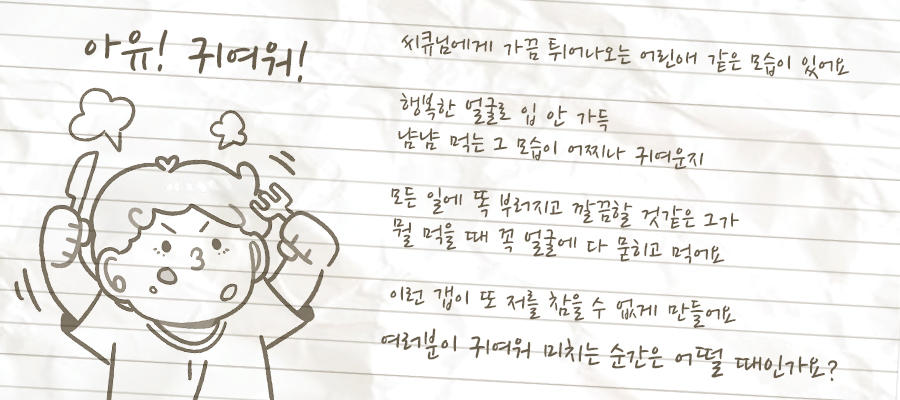 아유! 귀여워!
씨큐님에게 가끔 튀어나오는 어린애 같은 모습이 있어요
행복한 얼굴로 입 안 가득
냠냠 먹는 그 모습이 어찌나 귀여운지
모든 일에 똑 부러지고 깔끔할 것같은 그가
뭘 먹을 때 꼭 얼굴에 다 묻히고 먹어요
이런 갭이 또 저를 참을 수 없게 만들어요
여러분이 귀여워 미치는 순간은 어떨 때인가요?